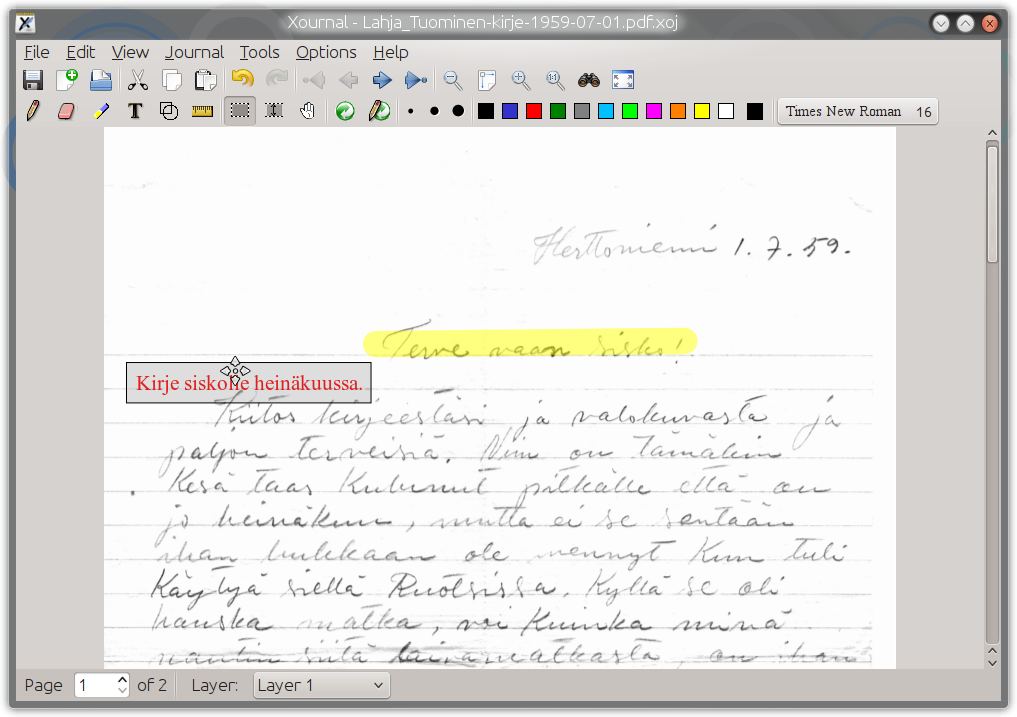 Xournal - Lahja_Tuominen-kirje-1959-07-01.pdf.xoj
File Edit View Journal Tools Options Help
Times New Roman 16
Herttoniemi 1.7.59.
Terve vaan sisko!
Kirje siskolle heinäkuussa.
Kiitos kirjeestäsi ja valokuvasta ja
paljon terveisiä. Niin on tämäkin
Kesä taas Kulunut pitkälle että on
jo heinäkuu, mutta ei se sentään
ihan hukkaan ole mennyt Kun tuli
Käytyä siellä Ruotsissa. Kyllä se oli
hauska matka, voi Kuinka minä
nautin siitä laivamatkasta, on ihan
Page 1 of 2 Layer: Layer 1